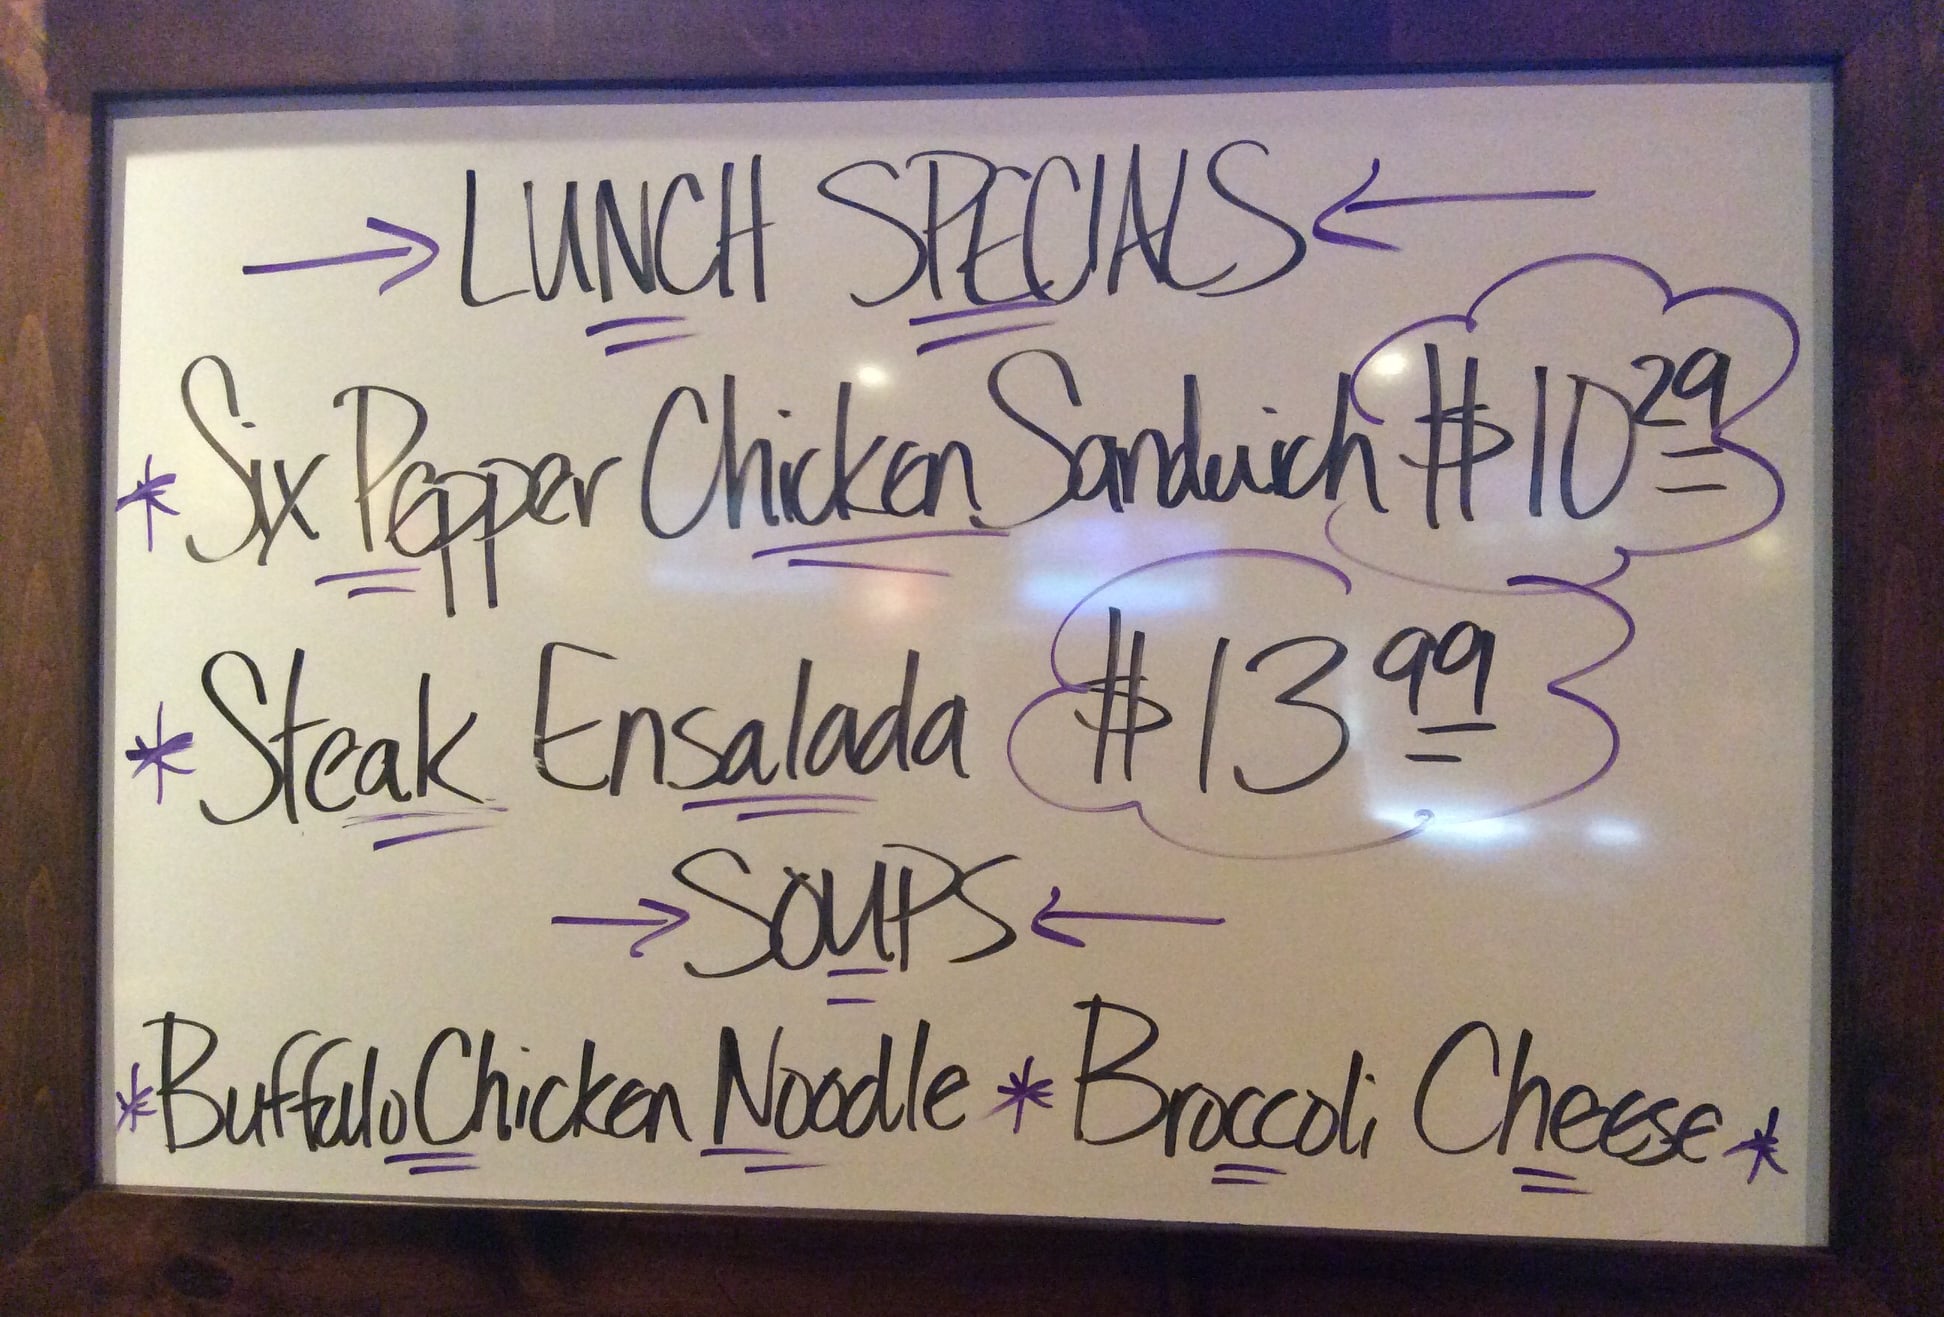 LUNCH SPECIALS
* Six Pepper Chicken Sandwich $10 29
* Steak Ensalada $13 99
SOUPS
* Buffalo Chicken Noodle * Broccoli Cheese *